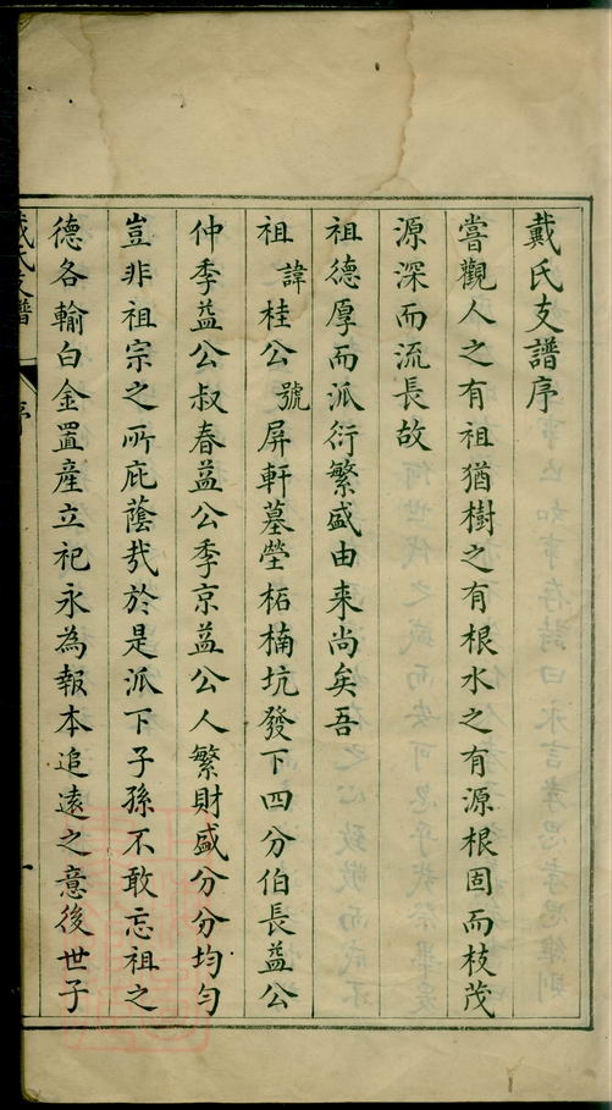 戴氏支譜序
嘗觀人之有祖猶樹之有根水之有源根固而枝茂
源深而流長故
祖德厚而派衍繁盛由来尚矣吾
祖諱桂公號屏軒墓塋柘楠坑發下四分伯長益公
仲季益公叔春益公季京益公人繁財盛分分均匀
豈非祖宗之所庇蔭㢤於是派下子孫不敢忘祖之
德各輸白金置産立祀永為報本追遠之意後世子
戴氏支譜 序 一